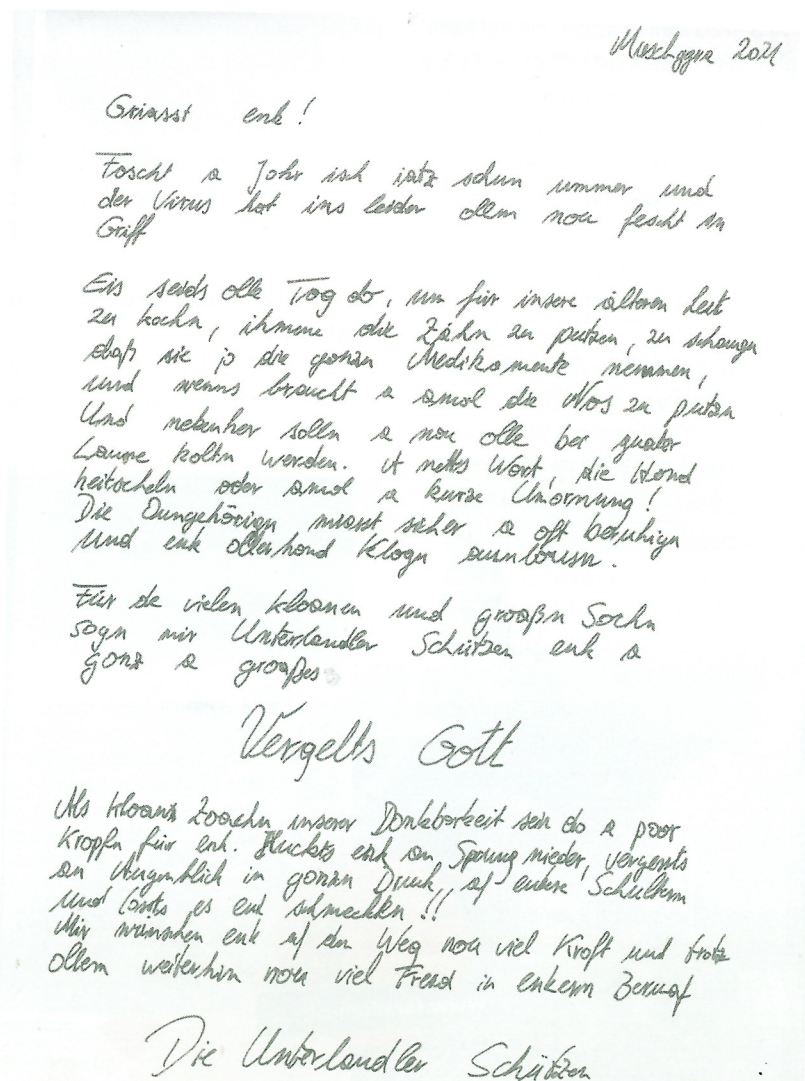 Muschggra 2021
Griasst enk!
Foscht a Johr isch iatz schun ummer und
der Virus hat ins leider ollm nou fescht in
Griff
Eis seids olle Tog do, um für insere älteren Leit
zu kochn, ihmene die Zähn zu putzen, zu schaugn
daß sie jo die gonzn Medikamente nemmen,
und wenns braucht a amol die Nos zu putzn
Und nebenher solln a nou olle ber guater
Laune koltn werden. A netts Wort, die Hond
heitscheln oder amol a kurze Umormung!
Die Ungehörign miasst sicher a oft beruhign
und enk ollerhond Klogn aunlousn.
Für de vielen kloanen und grooßn Sochn
sogn mir Unterlandler Schützen enk a
gonz a grooßes
Vergelts Gott
Als kloans Zoachn inserer Donkborkeit sein do a poor
Kropfn für enk. Huckts enk an Sprung nieder, vergessts
an Augnblick in gonzn Druck, af enkre Schultern
und losts es enk schmeckn!!
Mir winschen enk af den Weg nou viel Kroft und trotz
ollem weiterhin nou viel Freid in enkern Beruaf
Die Unterlandler Schützen